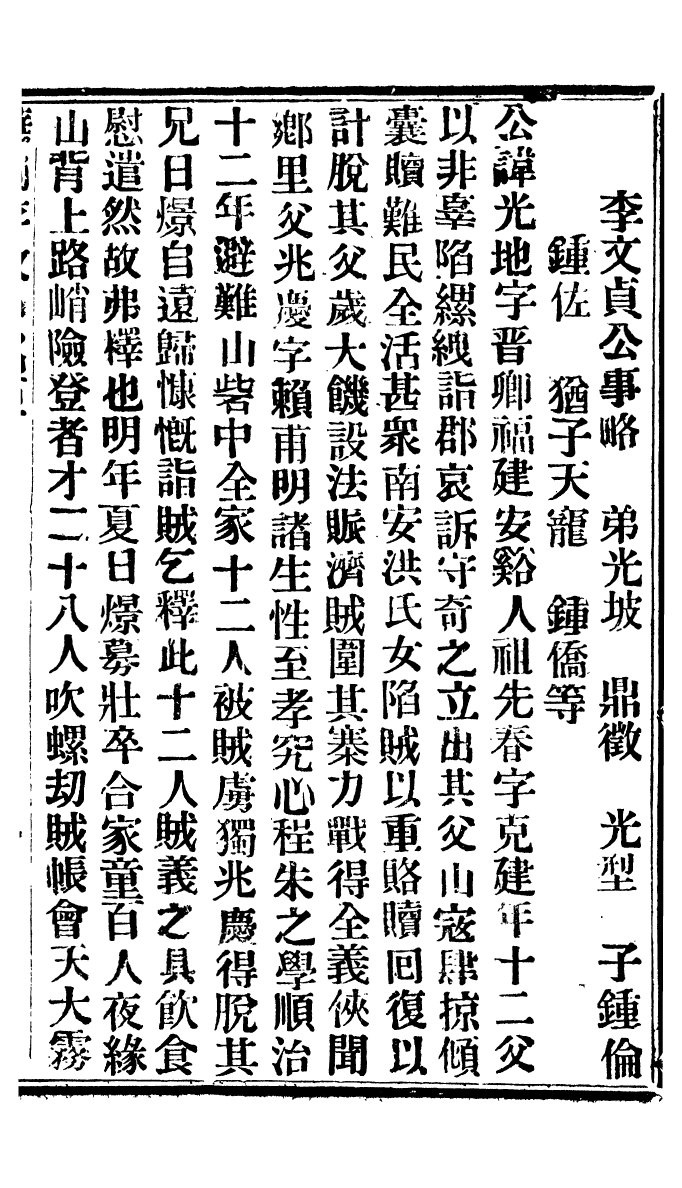 李文貞公事略　弟光坡　鼎徵　光型　子鍾倫
鍾佐　猶子天寵　鍾僑等
公諱光地字晋卿福建安谿人祖先春字克建年十二父
以非辜陷縲絏詣郡哀訴守奇之立出其父山寇肆掠傾
囊贖難民全活甚衆南安洪氏女陷賊以重賂贖回復以
計脫其父歲大饑設法賑濟賊圍其寨力戰得全義俠聞
鄉里父兆慶字賴甫明諸生性至孝究心程朱之學順治
十二年避難山砦中全家十二人被賊虜獨兆慶得脫其
兄日燝自遠歸慷慨詣賊乞釋此十二人賊義之具飲食
慰遣然故弗檡也明年夏日燝募壯卒合家童百人夜緣
山背上路峭險登者才二十八人吹螺刧賊帳會天大霧